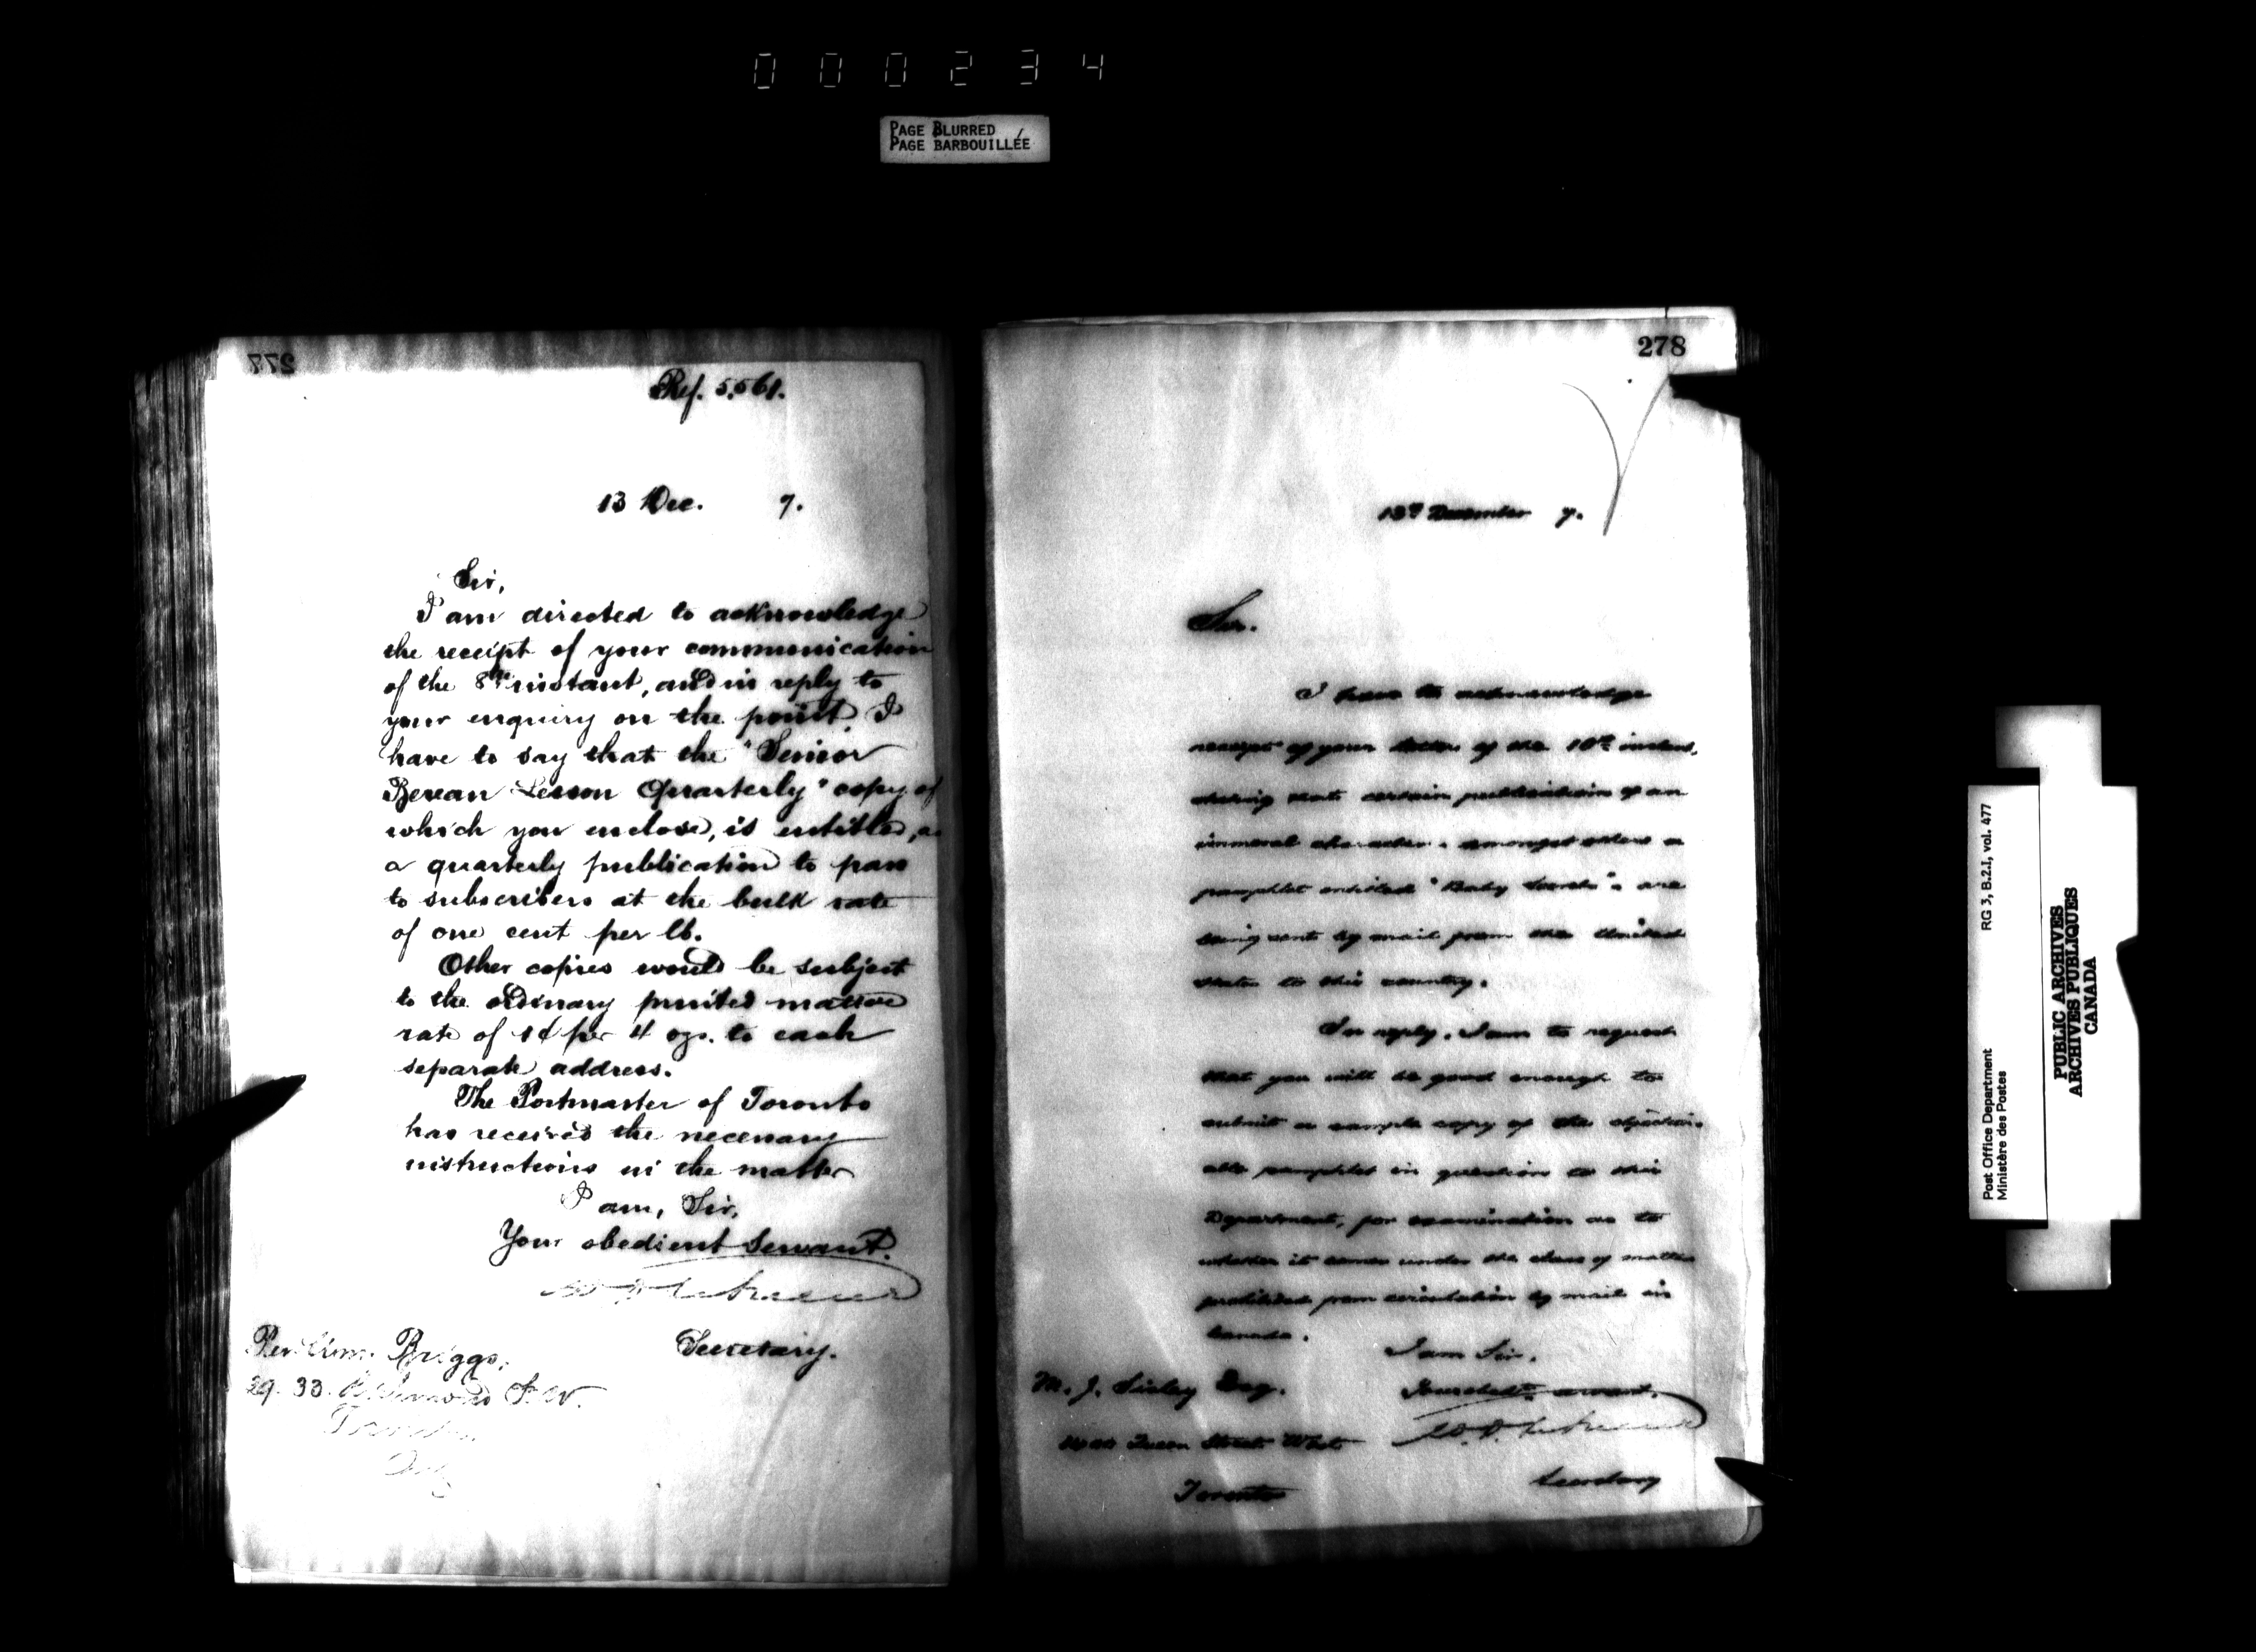 000234
PAGE BLURRED
PAGE BARBOUILLÉE
277
Ref. 5,561.
13 Dec. 7.
Sir,
I am directed to acknowledge
the receipt of your communication
of the 8th instant, and in reply to
your enquiry on the point I
have to say that the "Senior
Berean Lesson Quarterly" copy of
which you enclose, is entitled, as
a quarterly publication to pass
to subscribers at the bulk rate
of one cent per lb.
Other copies would be subject
to the ordinary printed matter
rate of 1¢ per 4 ozs. to each
separate address.
The Postmaster of Toronto
has received the necessary
instructions in the matter
I am, Sir,
Your obedient Servant.
Secretary.
Rev. Wm. Briggs,
29. 33. Richmond St. W.
Toronto
Ont.
278
13th December 7.
Sir.
I have to acknowledge
receipt of your letter of the 10th instant,
stating that certain publications of an
immoral character, amongst others a
pamphlet entitled "
being sent by mail from the United
States to this country.
In reply, I am to request
that you will be good enough to
submit a sample copy of the objection-
able pamphlet in question to this
Department, for examination as to
whether it comes under the class of matter
prohibited from circulation by mail in
Canada.
I am Sir,
Your obedt. servant,
Secretary
M. J. Sisley Esq.
Queen Street West
Toronto
Post Office Department RG 3, B.2.1, vol. 477
Ministère des Postes
PUBLIC ARCHIVES
ARCHIVES PUBLIQUES
CANADA